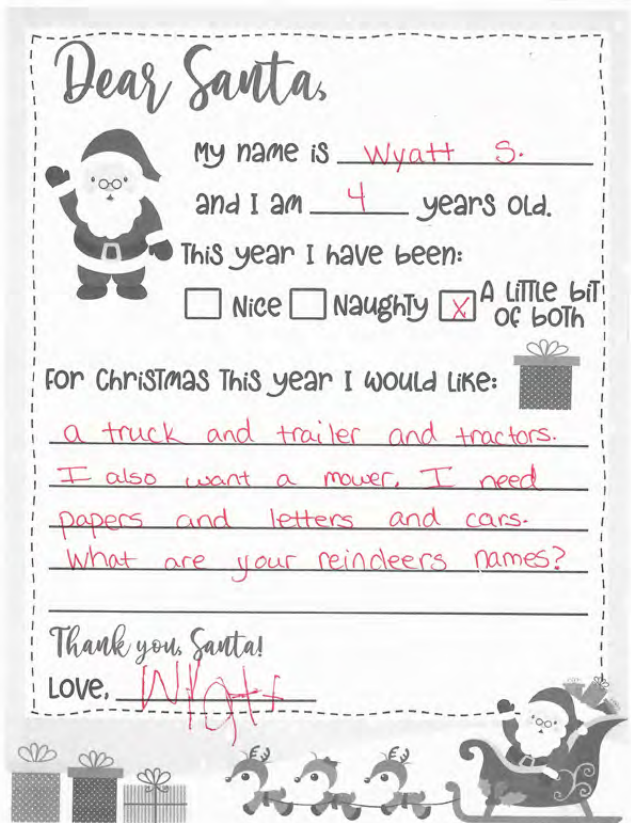 Dear Santa,
My name is Wyatt S.
and I am 4 years old.
This year I have been:
Nice Naughty x A little bit of both
For Christmas this year I would like:
a truck and trailer and tractors.
I also want a mower. I need
papers and letters and cars.
What are your reindeers names?
Thank you, Santa!
Love, Wyatt